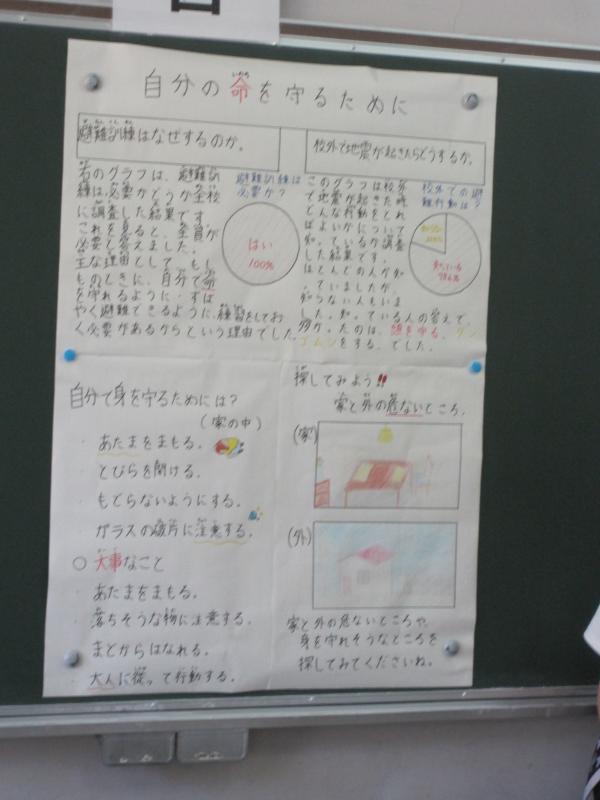 自分の命を守るために
避難訓練はなぜするのか。
右のグラフは、避難訓
練は必要かどうか全校
に調査した結果です。
これを見ると、全員が
必要と答えました。
主な理由として、もし
ものときに、自分で命
を守れるように・すば
やく避難できるように、練習をしてお
く必要があるからという理由でした。
避難訓練は
必要か?
はい
100%
校外で地震が起きたらどうするか。
このグラフは校外
で地震が起きた時
どんな行動をとれ
ばよいかについて
知っているか調査
した結果です。
ほとんどの人が知
っていましたが、
知らない人もいま
した。知っている人の答えで、
多かったのは、頭を守る、ダン
ゴムシをする、でした。
校外での避
難行動は?
知っている
自分で身を守るためには?
(家の中)
・あたまをまもる。
・とびらを開ける。
・もどらないようにする。
・ガラスの破片に注意する。
○大事なこと
・あたまをまもる。
・落ちそうな物に注意する。
・まどからはなれる。
・大人に従って行動する。
探してみよう!!
家と外の危ないところ。
(家)
(外)
家と外の危ないところや、
身を守れそうなところを
探してみてくださいね。